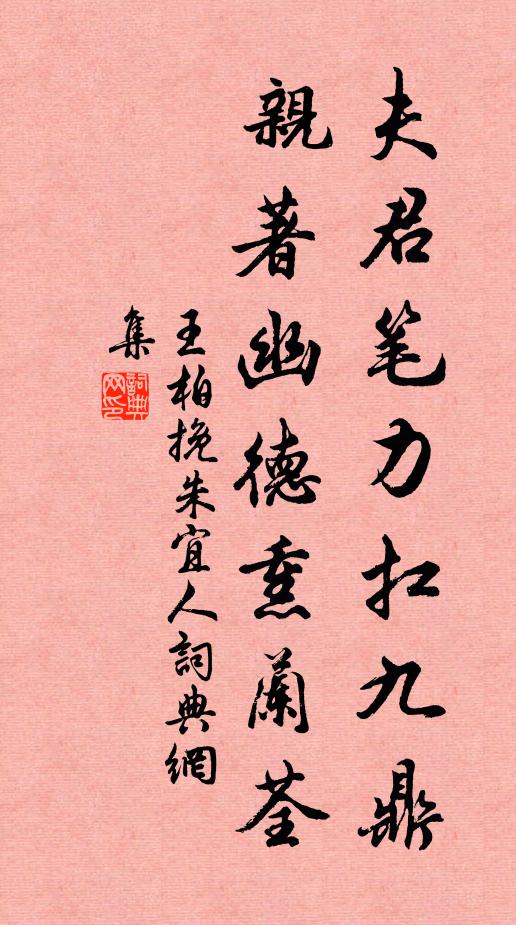 夫君笔力扛九鼎
親著幽德熏蘭荃
王柏挽朱宜人詞典網
集
詞典
网印